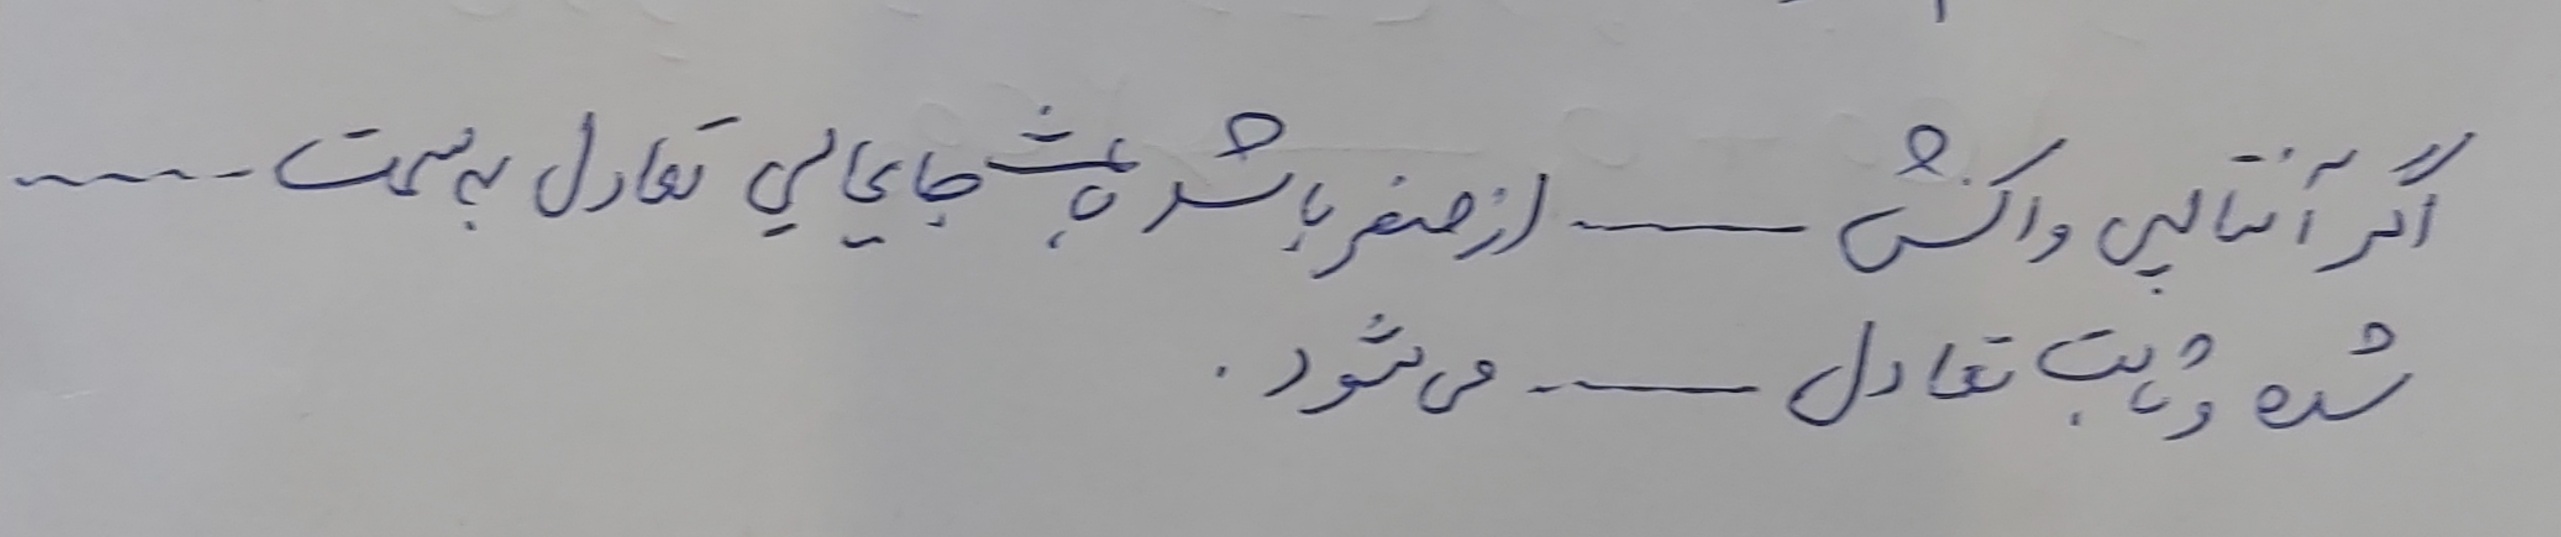 اگر آنتالپی واکنش ـــــــ از صفر باشد باعث جابجایی تعادل به سمت -----
شده و ثابت تعادل ـــــــ می شود .